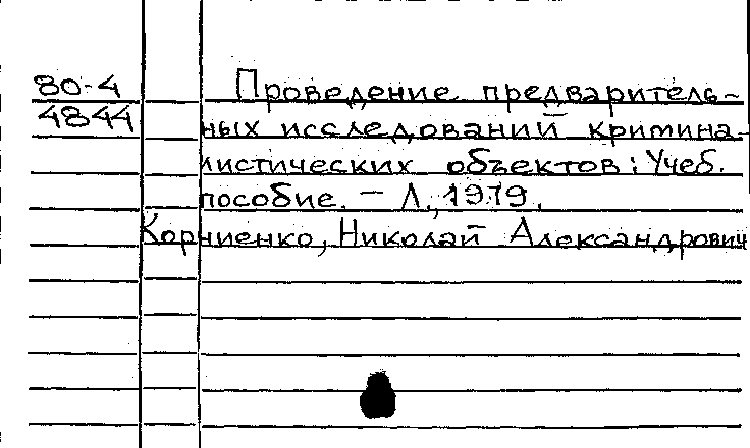 80-4 Проведение предваритель-
4844 ных исследований кримина-
листических объектов: Учеб.
пособие. - Л., 1979.
Корниенко, Николай Александрович